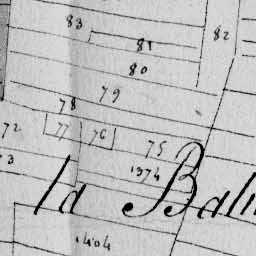 83
82
81
80
79
78
77
76
75
72
73
1374
la
1404